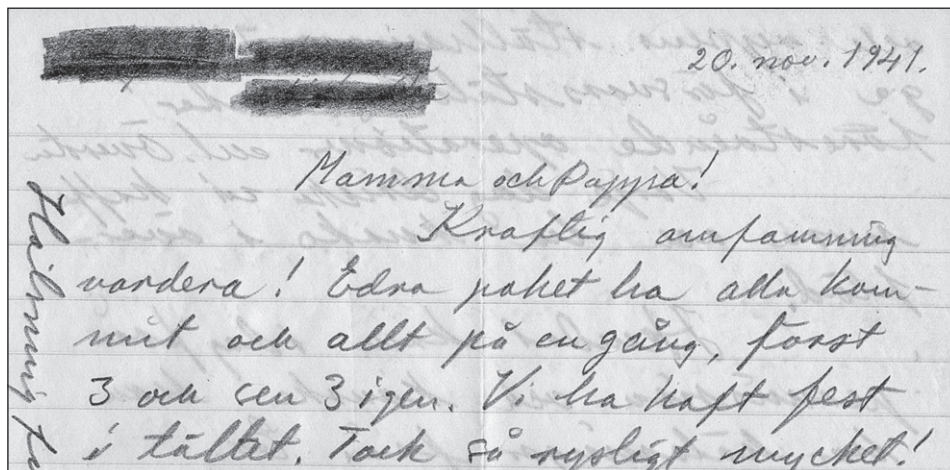 20. nov. 1941.
Mamma och Pappa!
Kraftig omfamning
vardera! Edra paket ha alla kom-
mit och allt på en gång, först
3 och sen 3 igen. Vi ha haft fest
i tältet. Tack så rysligt mycket!
Hälsning